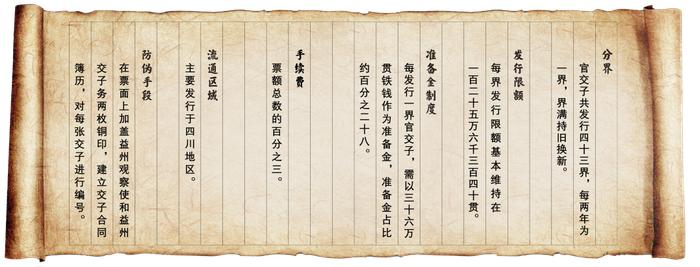 分界
官交子共发行四十三界，每两年为
一界，界满持旧换新。
发行限额
每界发行限额基本维持在
一百二十五万六千三百四十贯。
准备金制度
每发行一界官交子，需以三十六万
贯铁钱作为准备金，准备金占比
约百分之二十八。
手续费
票额总数的百分之三。
流通区域
主要发行于四川地区。
防伪手段
在票面上加盖益州观察使和益州
交子务两枚铜印，建立交子合同
簿历，对每张交子进行编号。